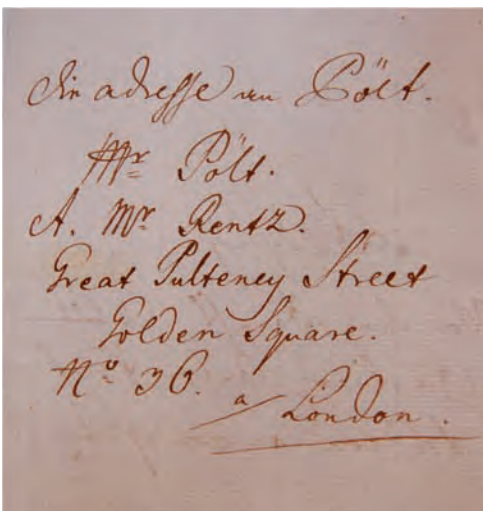 die adresse an Pölt.
Mr Pölt.
A. Mr Rentz.
Great Pulteney Street
Golden Square.
No 36.
a London.